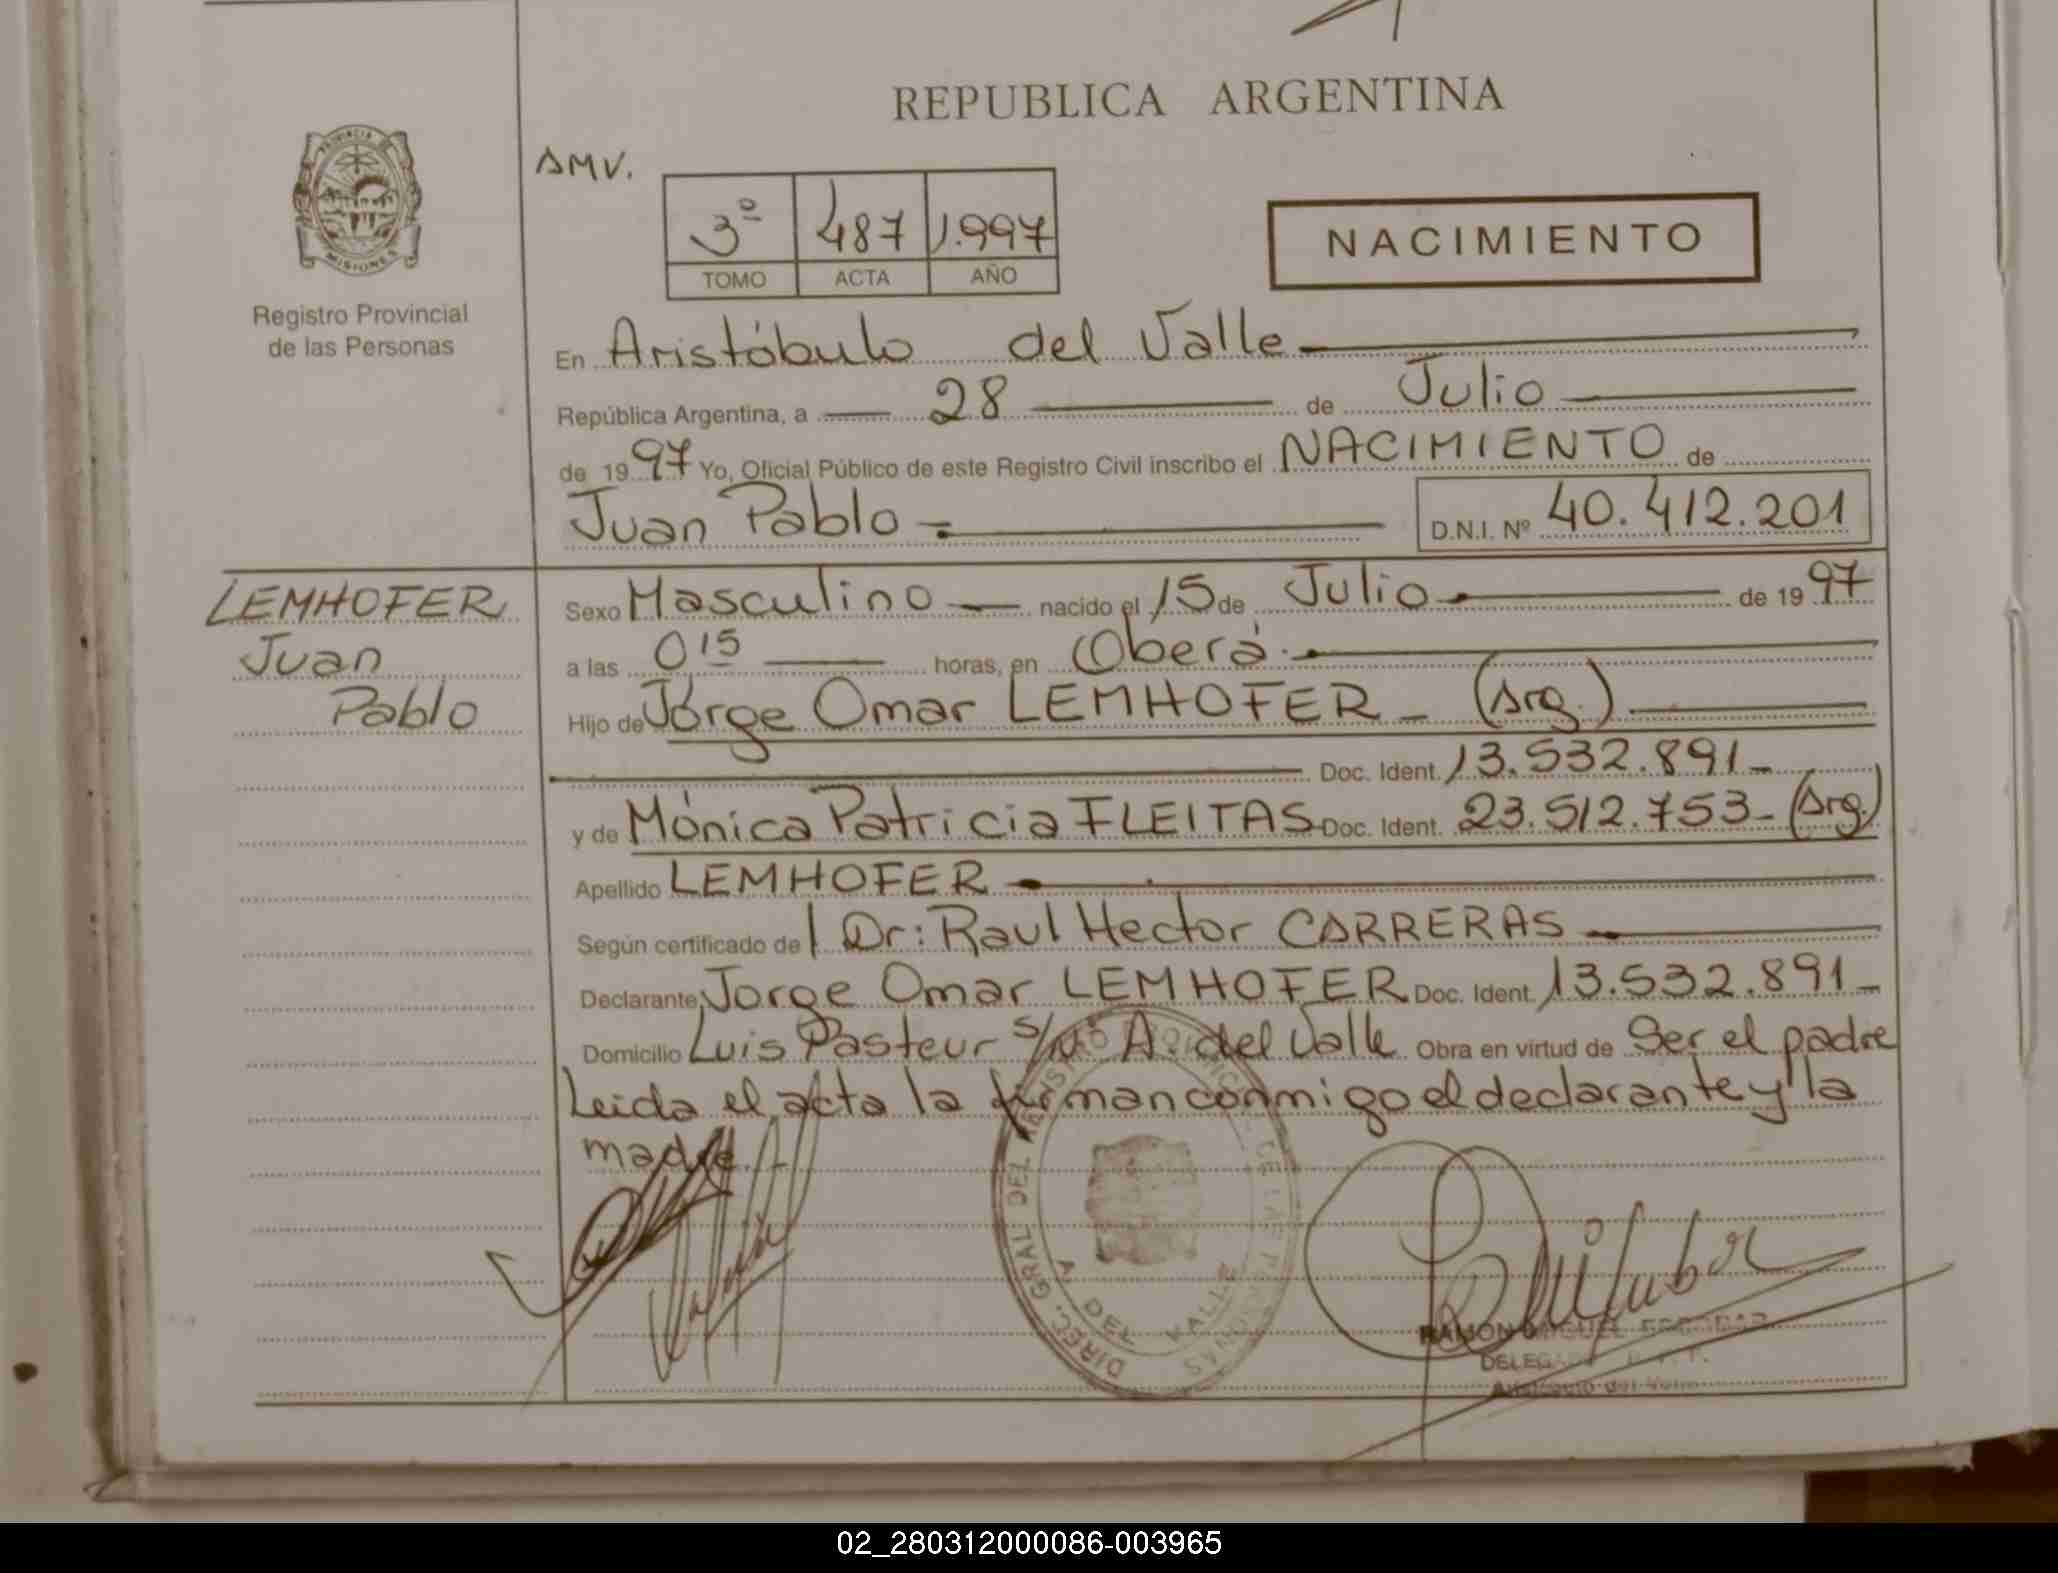 REPUBLICA ARGENTINA
PROVINCIA DE
MISIONES
Registro Provincial
de las Personas
AMV.
3º 487 1.997
TOMO ACTA AÑO
NACIMIENTO
En Aristóbulo del Valle
República Argentina, a 28 de Julio
de 1997 Yo, Oficial Público de este Registro Civil inscribo el NACIMIENTO de
Juan Pablo
D.N.I. Nº 40.412.201
LEMHOFER
Juan
Pablo
Sexo Masculino nacido el 15 de Julio de 1997
a las 0 15 horas, en Oberá.
Hijo de Jorge Omar LEMHOFER - (Arg.)
Doc. Ident. 13.532.891-
y de Mónica Patricia FLEITAS Doc. Ident. 23.512.753- (Arg.)
Apellido LEMHOFER
Según certificado de Dr: Raul Hector CARRERAS
Declarante Jorge Omar LEMHOFER Doc. Ident. 13.532.891-
Domicilio Luis Pasteur s/nº A. del Valle Obra en virtud de Ser el padre
Leida el acta la firman conmigo el declarante y la
madre.-
DIREC. GRAL DEL DE LAS PERSONAS
A. DEL VALLE
RAMON MIGUEL ESCOBAR
Aristobulo del Valle
02_280312000086-003965